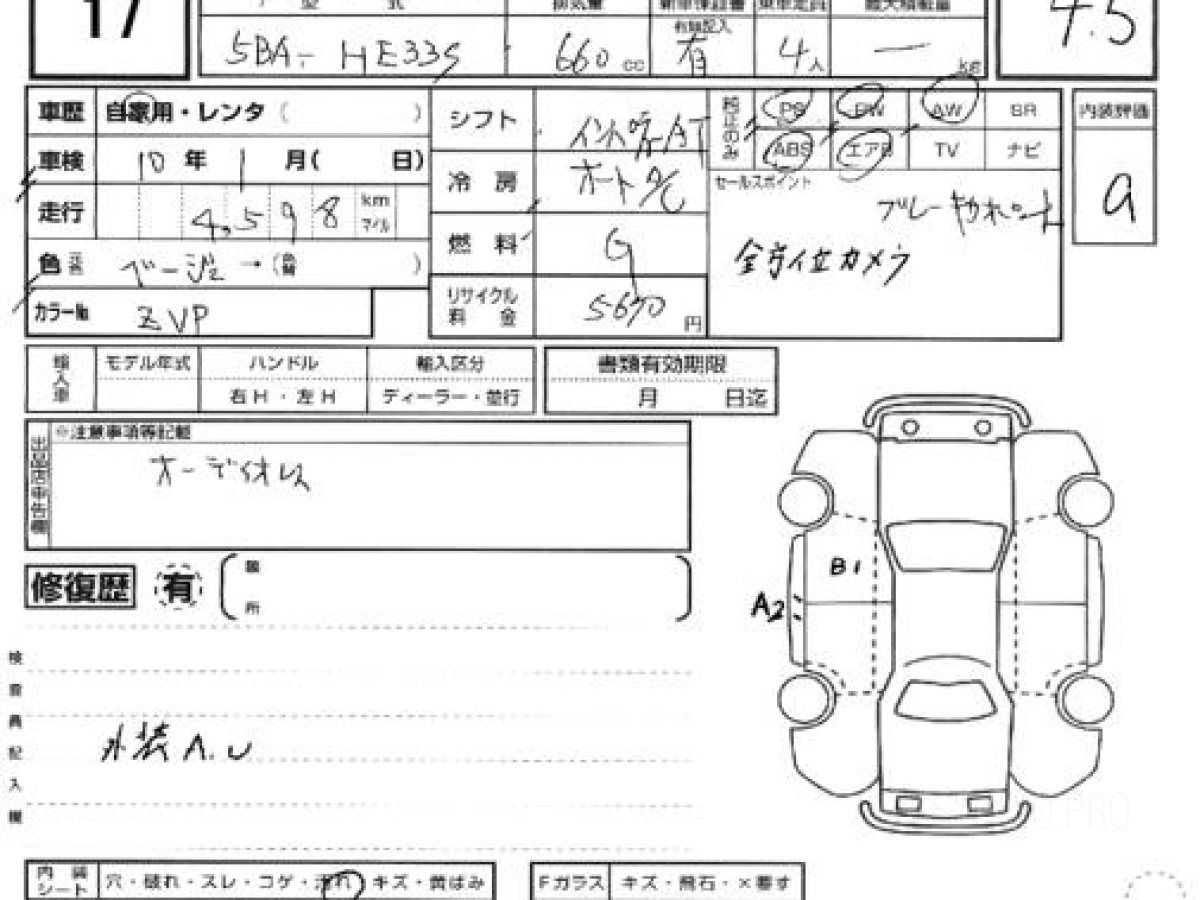 17
型 式 排気量 新車保証書 乗車定員 最大積載量
有無記入
5BA-HE33S 660 cc 有 4人 — kg 4.5
車歴 自家用・レンタ( )
シフト インパネAT
純正のみ PS PW AW BR
ABS エアB TV ナビ
内装評価
a
車検 10年 1月( 日)
冷房 オートA/C
セールスポイント
ブレーキサポート
全方位カメラ
走行 4,598 km マイル
燃料 G
色 元色 ベージュ → (色替 )
カラーNo. ZVP
リサイクル料金 5670円
輸入車 モデル年式 ハンドル 輸入区分
右H・左H ディーラー・並行
書類有効期限
月 日迄
出品店申告欄
※注意事項等記載
オーディオレス
修復歴 有 箇所
検査員記入欄
外装A.U
B1
A2
内装シート 穴・破れ・スレ・コゲ・汚れ・キズ・黄ばみ
Fガラス キズ・飛石・×要す